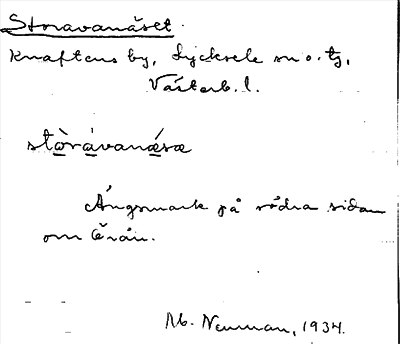 Storavanäset.
Knaftens by, Lycksele sn o. tg,
Västerb. l.
stòrávanǽsæ
Ängsmark på södra sidan
om Örån.
M. Neuman, 1934.